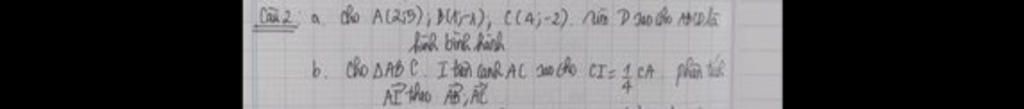 Câu 2: a. Cho A(2;5); B(1;-1), C(4;-2). Tìm D sao cho ABCD là
hình bình hành
b. Cho ΔABC. I trên cạnh AC sao cho CI = 1/4 CA phân tích
AI theo AB; AC